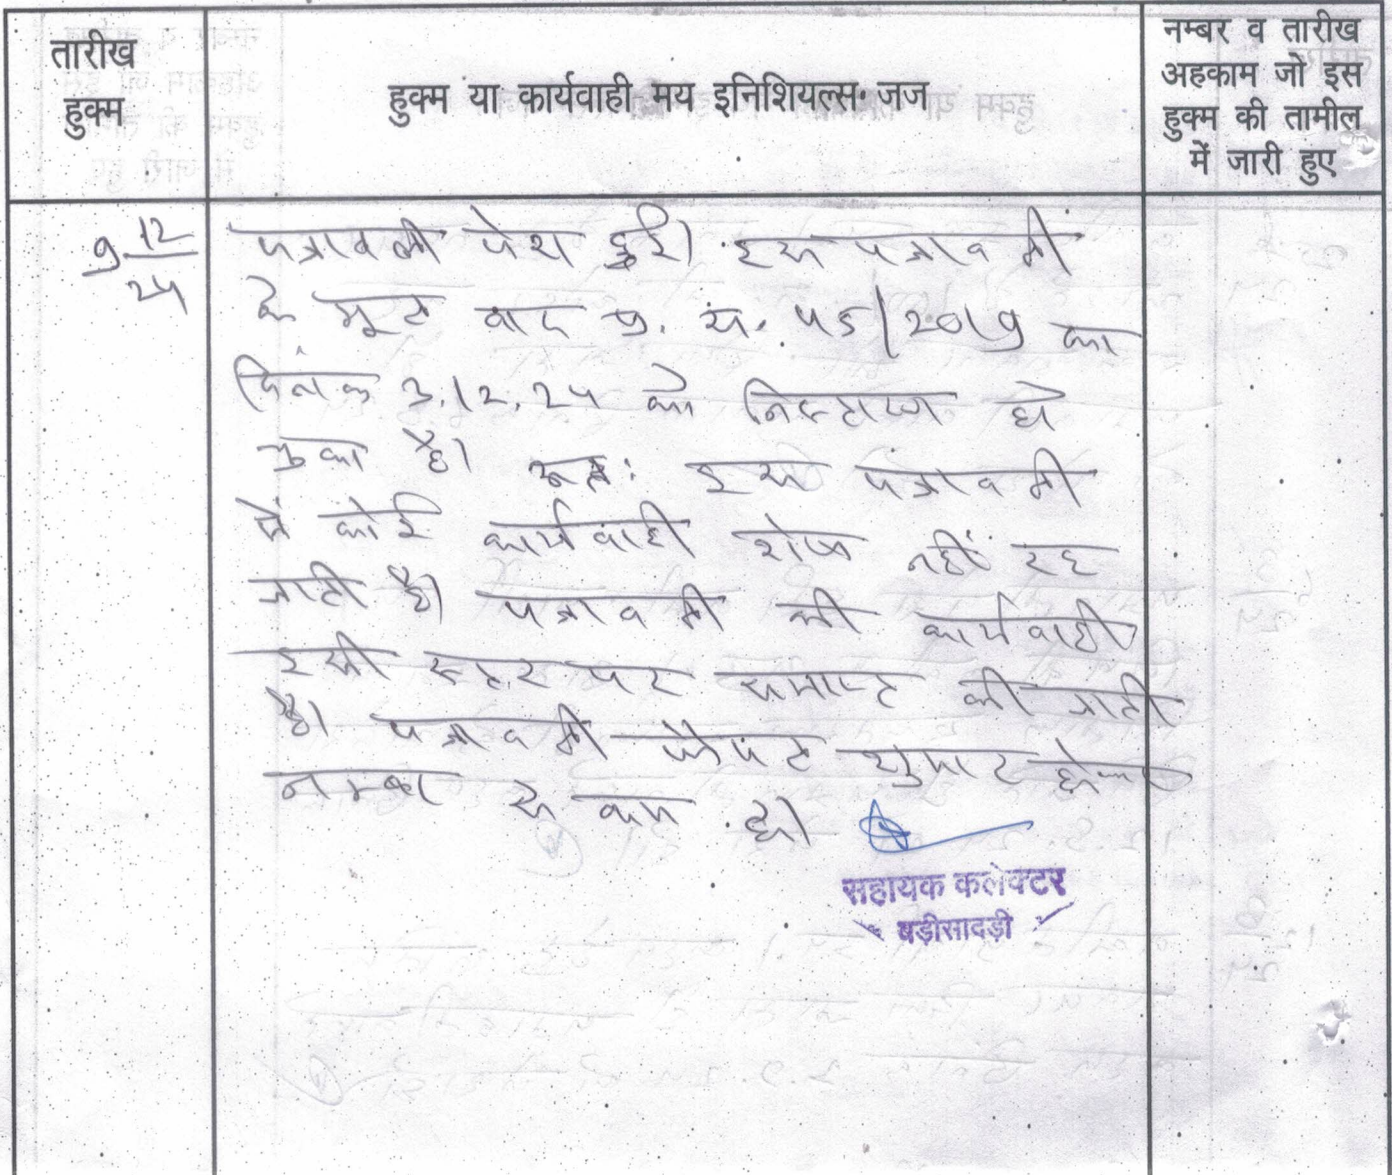 तारीख
हुक्म
हुक्म या कार्यवाही मय इनिशियल्स जज
नम्बर व तारीख
अहकाम जो इस
हुक्म की तामील
में जारी हुए
9 12/24
पत्रावली पेश हुई। इस पत्रावली
के मूल वाद प्र. सं. 45/2019 का
दिनांक 3.12.24 को निस्तारण हो
चुका है। अतः इस पत्रावली
में कोई कार्यवाही शेष नहीं रह
जाती है। पत्रावली की कार्यवाही
इसी स्तर पर समाप्त की जाती
है। पत्रावली फैसल शुमार होकर
नम्बर से कम हो।
सहायक कलेक्टर
बड़ीसादड़ी